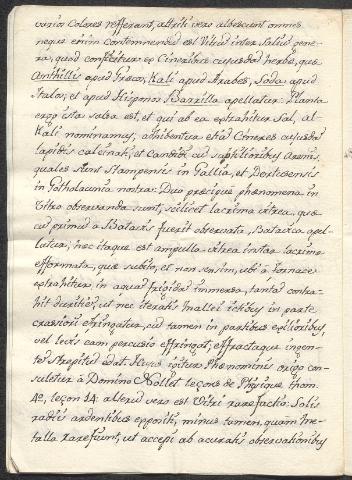 varios colores refferant, attriti vero albescunt omnes
neque enim contemnendũ est Vitrũ inter Salium gene-
ra, quod conflatur ex Cineribus cujusdã herbæ, quæ
Anthillis apud Græcos, Kali apud Arabes, Soda apud
Italos, et apud Hispanos Barrilla apellatur. Planta
ergo ista salsa est, et qui ab ea extrahitur Sal, al-
Kali nominamus, adhibentur etiã Cineres cujusdã
lapidis calcinati, et candidi, cũ subtilioribus Arenis,
quales sunt Stampensis in Gallia, et Dertosensis
in Gotholaunia nostra: Duo præcipue phænomena in
Vitro observanda sunt, scilicet lacrima vitrea, quæ
cũ primũ à Batavis fuerit observata, Batavica apel-
latur, hæc itaque est ampulla vitrea instar lacrimæ
efformata, quæ subito, et non sensim, ubi à fornace
extrahitur, in aquã frigidã immersa, tantã contra-
hit duritiẽ, ut nec iteratis mallei ictibus in parte
crassiori effringatur, cũ tamen in partibus exilioribus
vel levis eam percussio effringat, effractaque ingen-
tẽ strepitũ edat. Hujus igitur Phænominis origo con-
suletur à Domino Nollet leçons de Physique thom.
4º, leçon 14: alterũ vero est Vitri rarefactio: Solis
radiis ardentibus oppositi, minus tamen, quam me-
talla rarefiunt, ut accepi ab acuratis observationibus